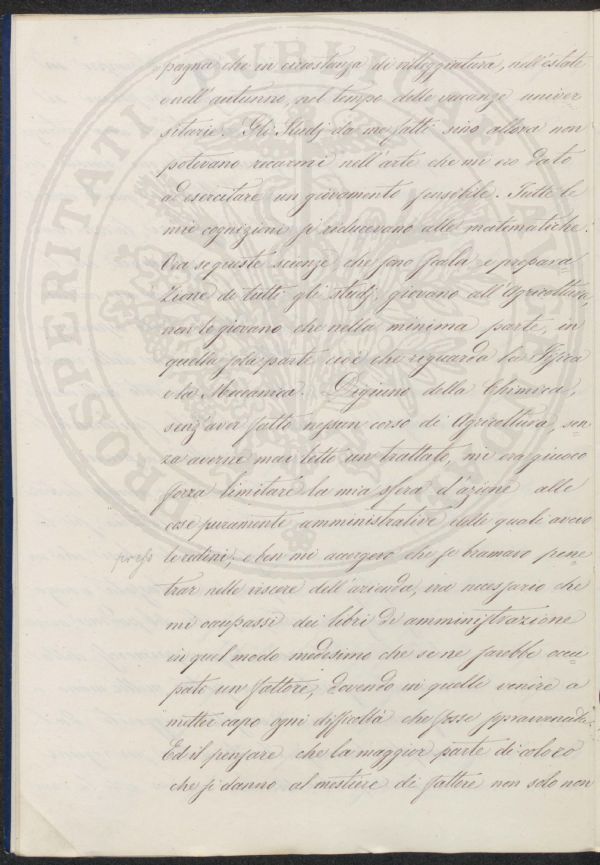 pagna che in circostanza di villeggiatura, nell'estate
e nell'autunno, nel tempo delle vacanze univer
sitarie. Gli Studj da me fatti sino allora non
potevano recarmi nell'arte che mi ero dato
ad esercitare un giovamento sensibile. Tutte le
mie cognizioni si riducevano alle matematiche.
Ora se queste scienze, che sono scala e prepara
zione di tutti gli studj, giovano all'Agricoltura,
non le giovano che nella minima parte, in
quella sola parte cioè che riguarda la Fisica
e la Meccanica. Digiuno della Chimica,
senz'aver fatto nessun corso di Agricoltura, sen
za averne mai letto un trattato, mi era giuoco
forza limitare la mia sfera d'azione alle
cose puramente amministrative delle quali avevo
preso le redini; e ben mi accorgevo che se bramavo pene
trar nelle viscere dell'azienda, era necessario che
mi occupassi dei libri di amministrazione
in quel modo medesimo che se ne sarebbe occu
pato un fattore, dovendo in quelle venire a
metter capo ogni difficoltà che fosse
Ed il pensare che la maggior parte di coloro
che si danno al mestiere di fattore non solo non
PROSPERITATI PUBLICAE